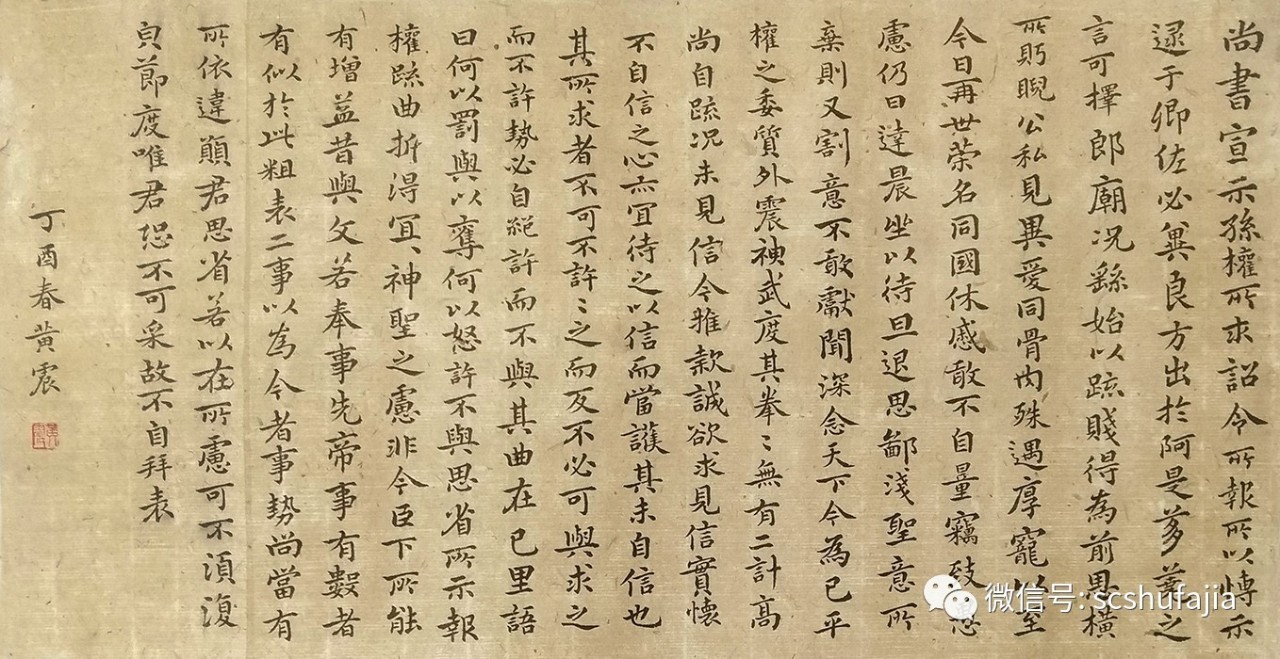 尚書宣示孫權所求詔令所報所以博示
逮于卿佐必冀良方出於阿是芻蕘之
言可擇郎廟况繇始以疏賤得為前恩橫
所眄睨公私見異愛同骨肉殊遇厚寵以至
今日再世荣名同國休慼敢不自量竊致愚
慮仍日達晨坐以待旦退思鄙淺聖意所
棄則又割意不敢獻聞深念天下今為已平
權之委質外震神武度其拳〻無有二計高
尚自疏况未見信今推款誠欲求見信實懷
不自信之心亦宜待之以信而當護其未自信也
其所求者不可不許〻之而反不必可與求之
而不許勢必自絕許而不與其曲在己里語
曰何以罰與以奪何以怒許不與思省所示報
權疏曲折得宜〻神聖之慮非今臣下所能
有增益昔與文若奉事先帝事有數者
有似於此粗表二事以為今者事勢尚當有
所依違願君思省若以在所慮可不須復
貟節度唯君恐不可采故不自拜表
丁酉春黃震
微信号: scshufajia